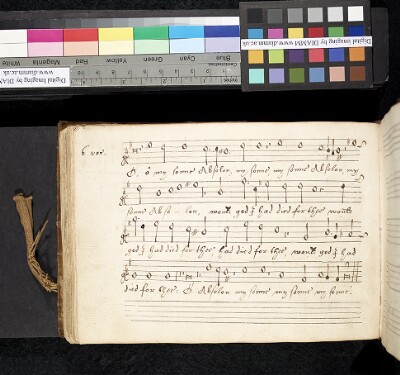 Blue Cyan Green Yellow Red Magenta White
Centimetres
Digital Imaging by DIAMM
www.diamm.ac.uk
Digital Imaging by DIAMM
www.diamm.ac.uk
6 voc.
O, o my sonne Absolon, my sonne my sonne Absolon, my
sonne Abso - lon, would god I had died for thee would
god I had died for thee, had died for thee would god I had
died for thee. O Absolon my sonne my sonne my sonne.